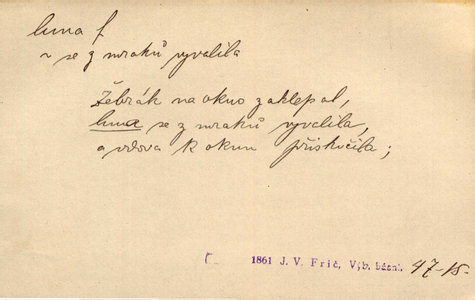 luna f
~ se z mraků vyvalila
Žebrák na okno zaklepal,
luna se z mraků vyvalila,
a vdova k oknu přiskočila;
1861 J. V. Frič, Výb. básní 47-15.